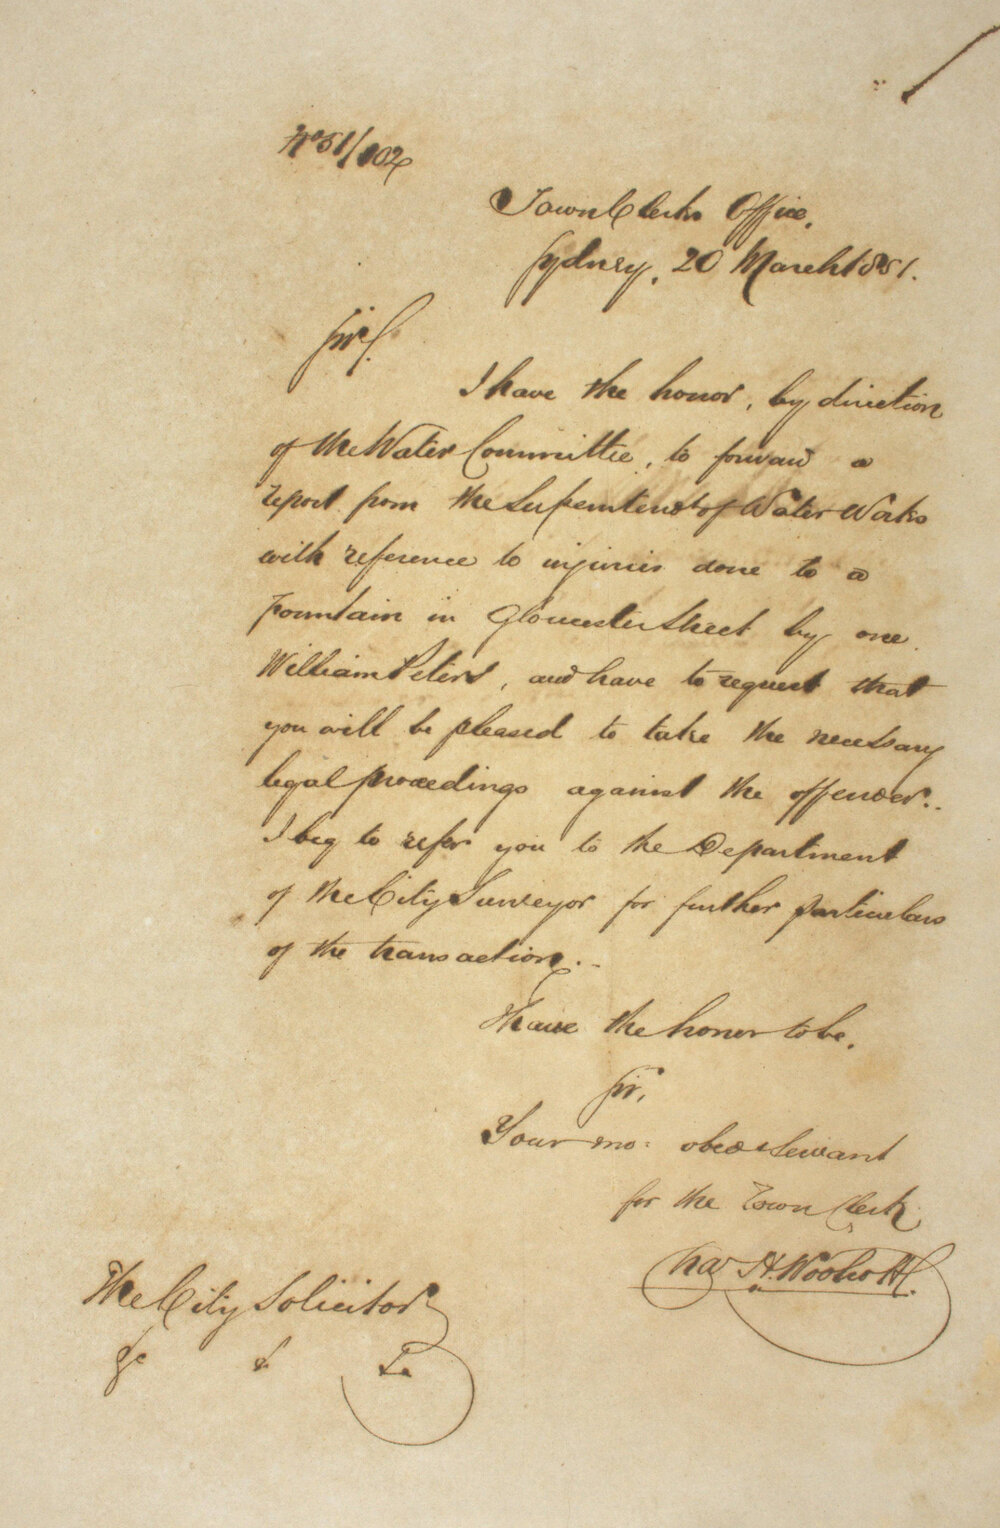 No 51/102
Town Clerks Office,
Sydney, 20 March 1851.
Sir,
I have the honor, by direction
of the Water Committee, to forward a
report from the Superintendt of Water Works
with reference to injuries done to a
Fountain in Gloucester Street by one
William Peters, and have to request that
you will be pleased to take the necessary
legal proceedings against the offender.
I beg to refer you to the Department
of the City Surveyor for further particulars
of the transaction.
I have the honor to be,
Sir,
Your mo: obedt Servant
for the Town Clerk
Chas H. Woolcott
The City Solicitor
&c & &c